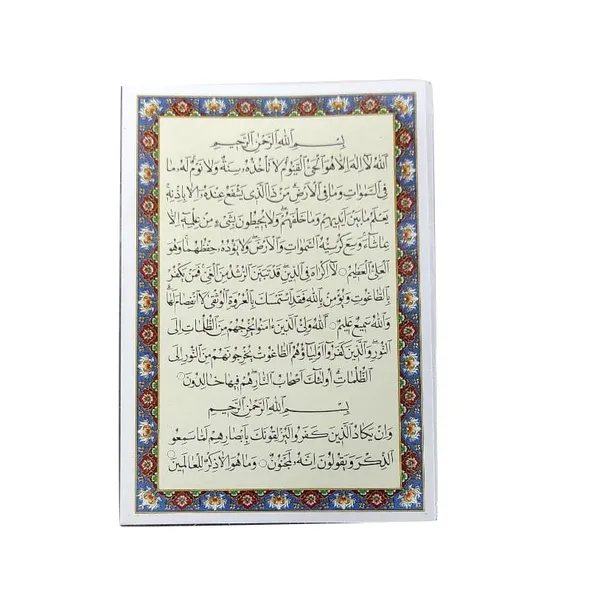 بِسْمِ اللَّهِ الرَّحْمَٰنِ الرَّحِيمِ
اَللَّهُ لَا إِلَٰهَ إِلَّا هُوَ الْحَيُّ الْقَيُّومُ لَا تَأْخُذُهُ سِنَةٌ وَلَا نَوْمٌ لَهُ مَا
فِي السَّمَوَاتِ وَمَا فِي الْأَرْضِ مَنْ ذَا الَّذِي يَشْفَعُ عِنْدَهُ إِلَّا بِإِذْنِهِ
يَعْلَمُ مَا بَيْنَ أَيْدِيهِمْ وَمَا خَلْفَهُمْ وَلَا يُحِيطُونَ بِشَيْءٍ مِنْ عِلْمِهِ إِلَّا
بِمَا شَاءَ وَسِعَ كُرْسِيُّهُ السَّمَوَاتِ وَالْأَرْضَ وَلَا يَئُودُهُ حِفْظُهُمَا وَهُوَ
الْعَلِيُّ الْعَظِيمُ لَا إِكْرَاهَ فِي الدِّينِ قَدْ تَبَيَّنَ الرُّشْدُ مِنَ الْغَيِّ فَمَنْ يَكْفُرْ
بِالطَّاغُوتِ وَيُؤْمِنْ بِاللَّهِ فَقَدِ اسْتَمْسَكَ بِالْعُرْوَةِ الْوُثْقَى لَا انْفِصَامَ لَهَا
وَاللَّهُ سَمِيعٌ عَلِيمٌ اللَّهُ وَلِيُّ الَّذِينَ ءَامَنُوا يُخْرِجُهُمْ مِنَ الظُّلُمَاتِ إِلَى
النُّورِ وَالَّذِينَ كَفَرُوا أَوْلِيَاؤُهُمُ الطَّاغُوتُ يُخْرِجُونَهُمْ مِنَ النُّورِ إِلَى
الظُّلُمَاتِ أُولَئِكَ أَصْحَابُ النَّارِ هُمْ فِيهَا خَالِدُونَ
بِسْمِ اللَّهِ الرَّحْمَٰنِ الرَّحِيمِ
وَإِنْ يَكَادُ الَّذِينَ كَفَرُوا لَيُزْلِقُونَكَ بِأَبْصَارِهِمْ لَمَّا سَمِعُوا
الذِّكْرَ وَيَقُولُونَ إِنَّهُ لَمَجْنُونٌ وَمَا هُوَ إِلَّا ذِكْرٌ لِلْعَالَمِينَ